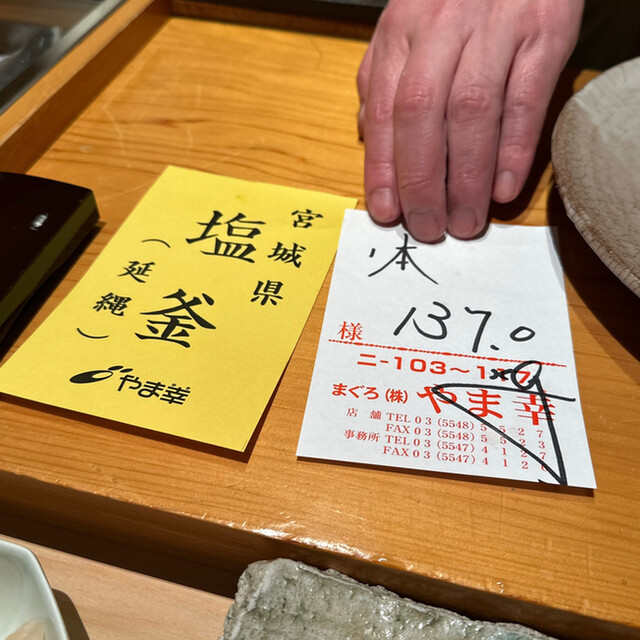 宮城県
塩釜
（延縄）
やま幸
137.0
様
ニ-103～1
まぐろ（株）やま幸
店舗 TEL 03 (5548) 5527
FAX 03 (5548) 5523
事務所 TEL 03 (5547) 412
FAX 03 (5547) 412